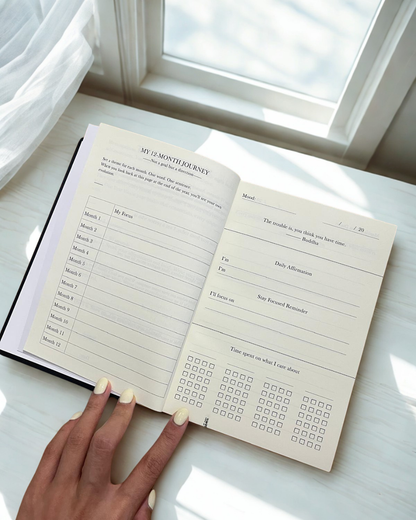 MY 12-MONTH JOURNEY
Not a goal but a direction
Set a theme for each month. One word. One sentence.
When you look back at this page at the end of the year, you'll see your own
evolution.
My Focus
Month 1
Month 2
Month 3
Month 4
Month 5
Month 6
Month 7
Month 8
Month 9
Month 10
Month 11
Month 12
Mood:
/ / 20
The trouble is, you think you have time.
Buddha
Daily Affirmation
I'm
I'm
Stay Focused Reminder
I'll focus on
Time spent on what I care about